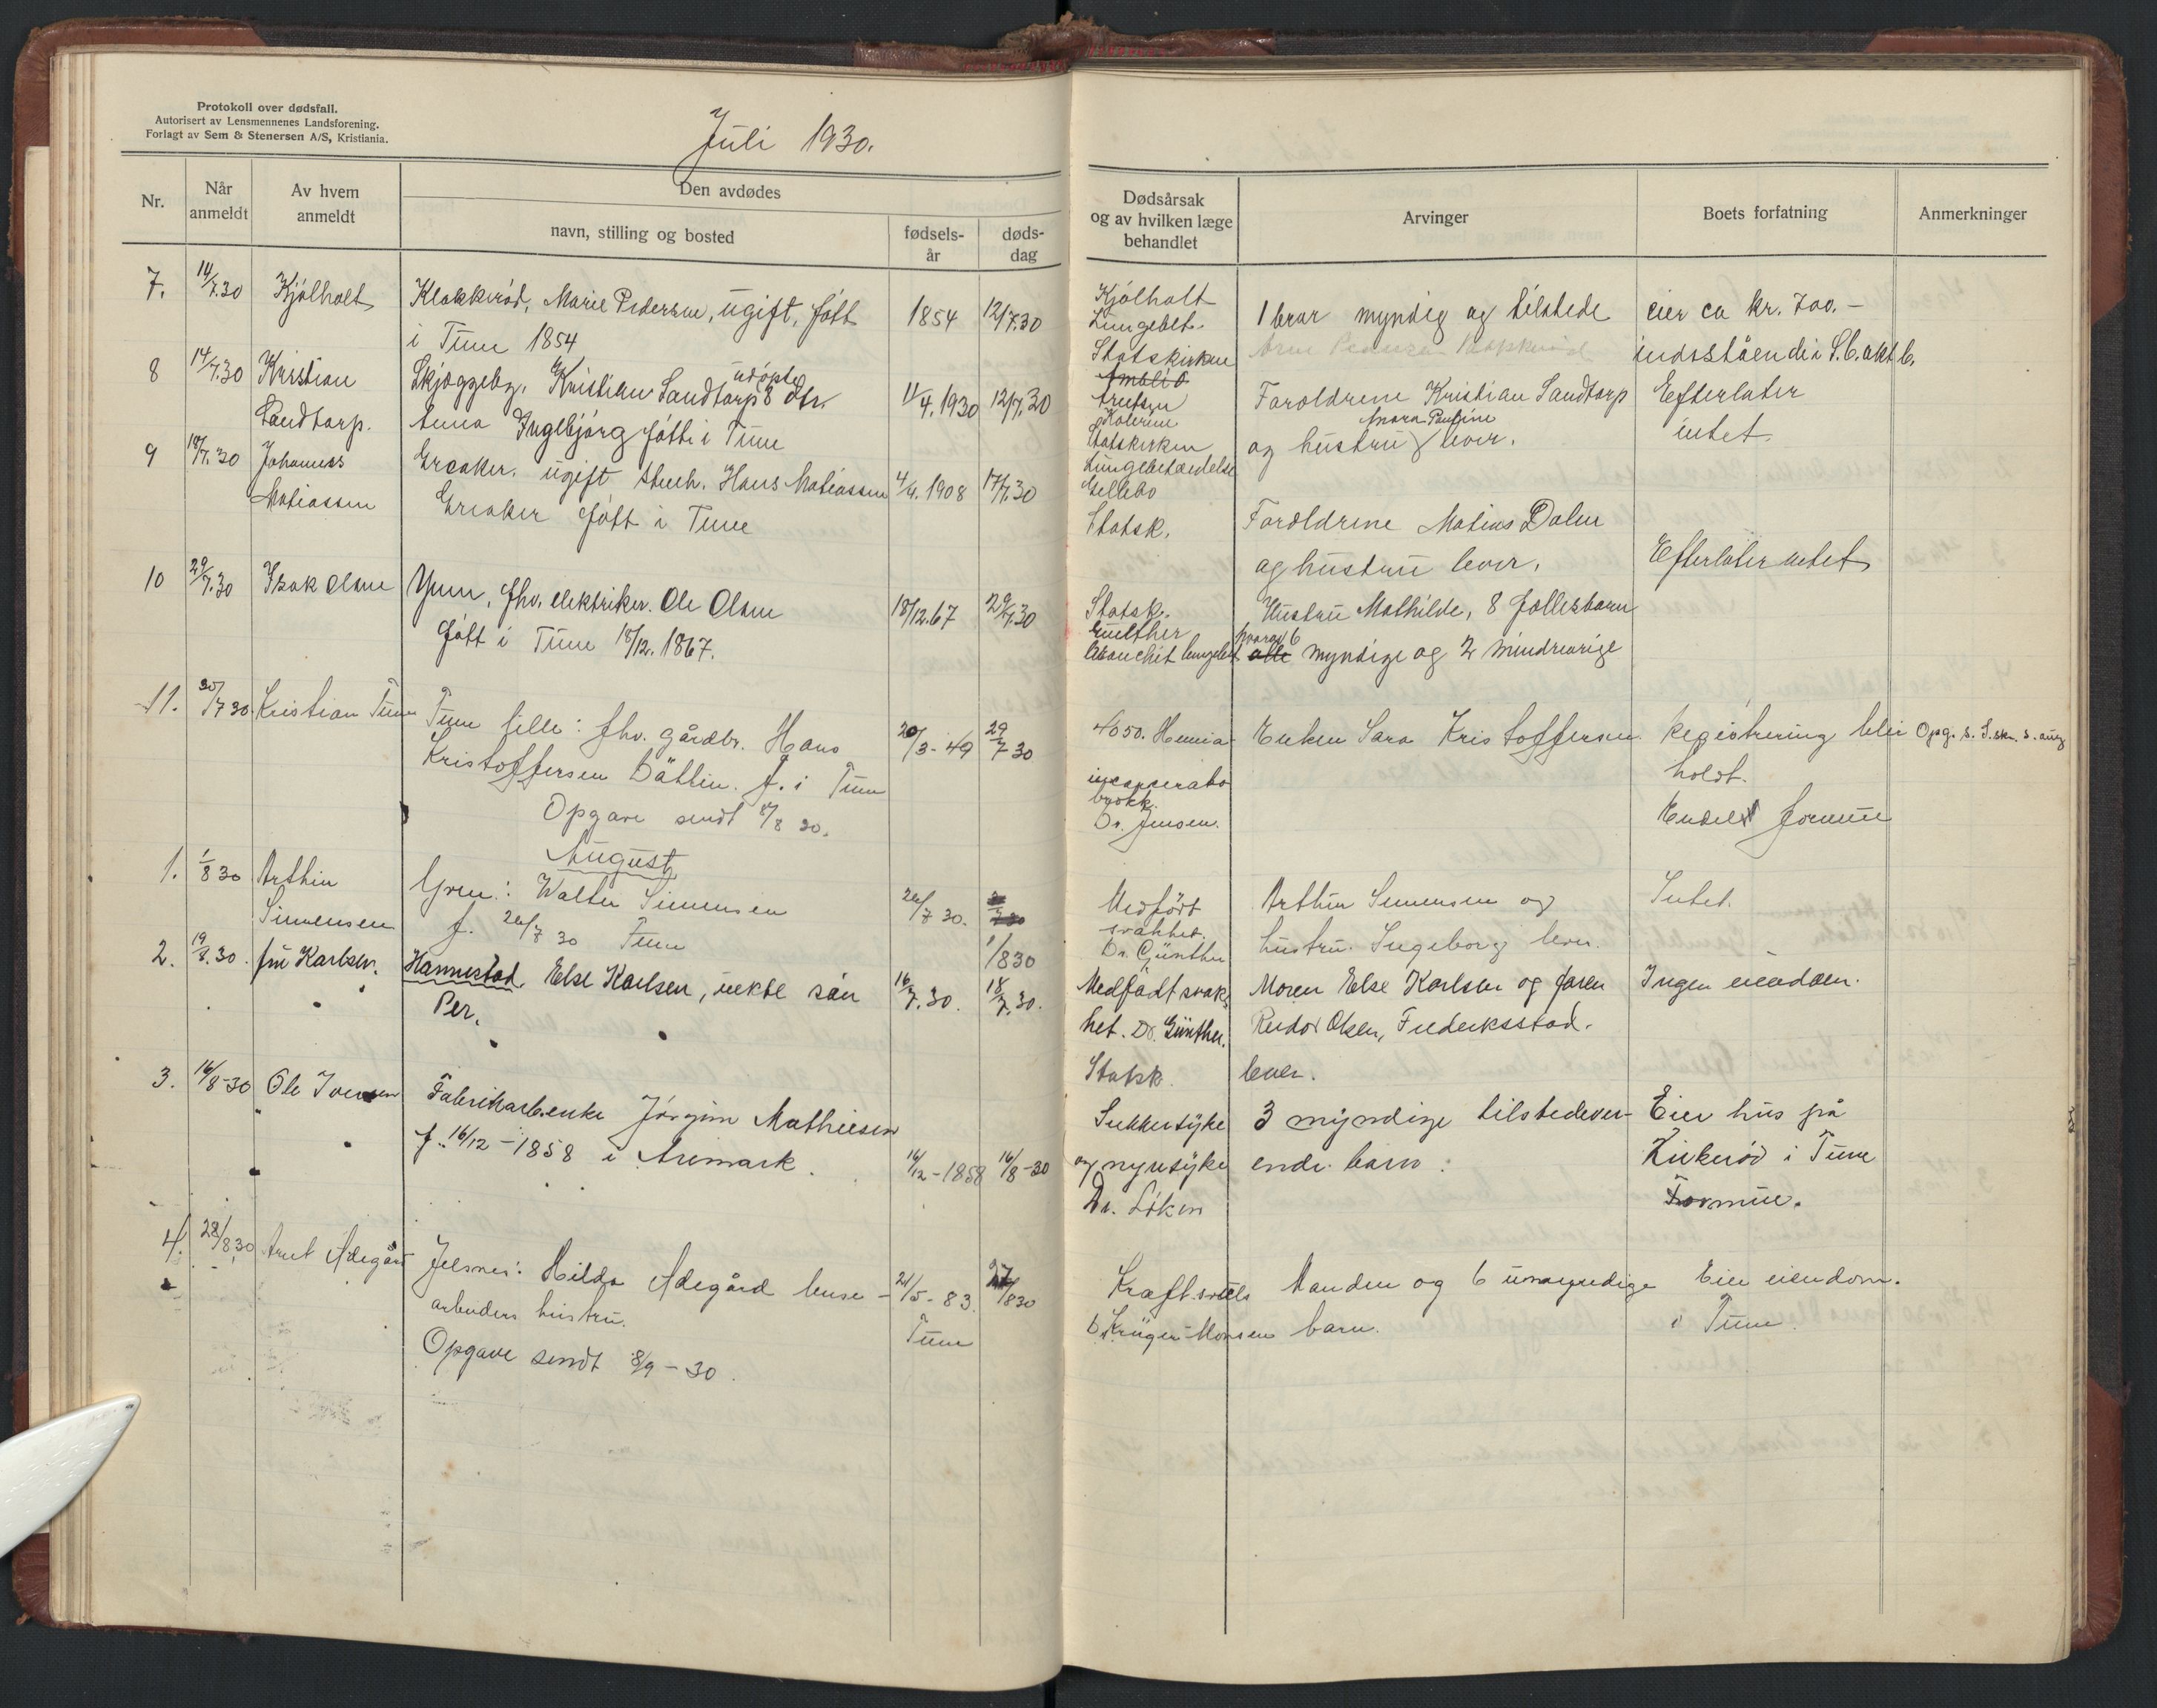 Protokoll over dødsfall.
Autorisert av Lensmennenes Landsforening.
Forlagt av Sem & Stenersen A/S, Kristiania.
Juli 1930.
Nr.
Når anmeldt
Av hvem anmeldt
Den avdødes
navn, stilling og bosted
fødsels-år
døds-dag
Dødsårsak og av hvilken læge behandlet
Arvinger
Boets forfatning
Anmerkninger
7. 14/7.30 Kjølholt Klokkerød, Marie Pedersen, ugift, født 1854 12/7.30
i Tune 1854
Kjølholt
Lungebet.
Statskirken
1 bror myndig og tilstede
eier ca kr. 700.-
indestående i S.b. aktb.
8 14/7.30 Kristian Sandtarp. Skjøggeby, Kristian Sandtarps udøpte dtr. 11/4.1930 12/7.30
Anna Ingebjørg født i Tune
Statskirken
Foreldrene Kristian Sandtorp
og hustru Anna Pauline lever.
Efterlater
intet.
9 18/7.30 Johannes Matiassen Greaker. ugift stuch. Hans Matiassen 4/4.1908 17/7.30
Greaker født i Tune
Lungebetændelse
Gillebo
Statsk.
Foreldrene Matias Dalen
og hustru lever.
Efterlater intet
10 29/7.30 Isak Olsen Yven, fhv. elektriker. Ole Olsen 18/12.67 29/7.30
født i Tune 18/12.1867.
Statsk.
Günther
Bronchit lungebet
Hustru Mathilde, 8 fællesbarn
hvorav 6
alle myndige og 2 mindreårige
11. 30/7 30. Kristian Tune Tune lille: fhv. gårdbr. Hans 20/3-49 29/7 30
Kristoffersen Dättin. f. i Tune
Opgave sendt 8/8 30.
4050. Hernia
incarcerata
brokk.
Dr. Jensen.
Enken Sara Kristoffersen.
Registrering blir
holdt.
Endel formue
Opg. s. S.skr. 5. aug
August
1. 1/8 30 Arthur Simensen Yven: Walter Simensen 26/7 30. 1/8 30
f. 26/7 30 Tune
Medfødt
svakhet.
Dr. Günther
Arthur Simensen og
hustru Ingeborg lever.
Intet.
2. 19/8.30. fru Karlsen. Hannestad, Else Karlsen, uekte søn 16/7.30. 18/7.30.
Per.
Medfødt svak-
het. Dr. Günther.
Statsk.
Moren Else Karlsen og faren
Reidar Olsen, Frederiksstad.
lever.
Ingen eiendom.
3. 16/8-30 Ole Iversen Fabrikarb.enke Jørgine Mathiesen
f. 16/12-1858 i Aremark. 16/12-1858 16/8-30
Sukkersyke
og nyresyke
Dr. Løken
3 myndige tilstedever-
ende barn.
Eier hus på
Lirkerød i Tune
Formue.
4. 28/8.30 Arnt Ødegård Jelsnes: Hilda Ødegård lense- 21/5-83. 27/8 30
arbeiders hustru. Tune
Opgave sendt 8/9-30.
Kraft.svuls
D. Krüger-Monsen
Manden og 6 umyndige
barn.
Eier eiendom.
i Tune.